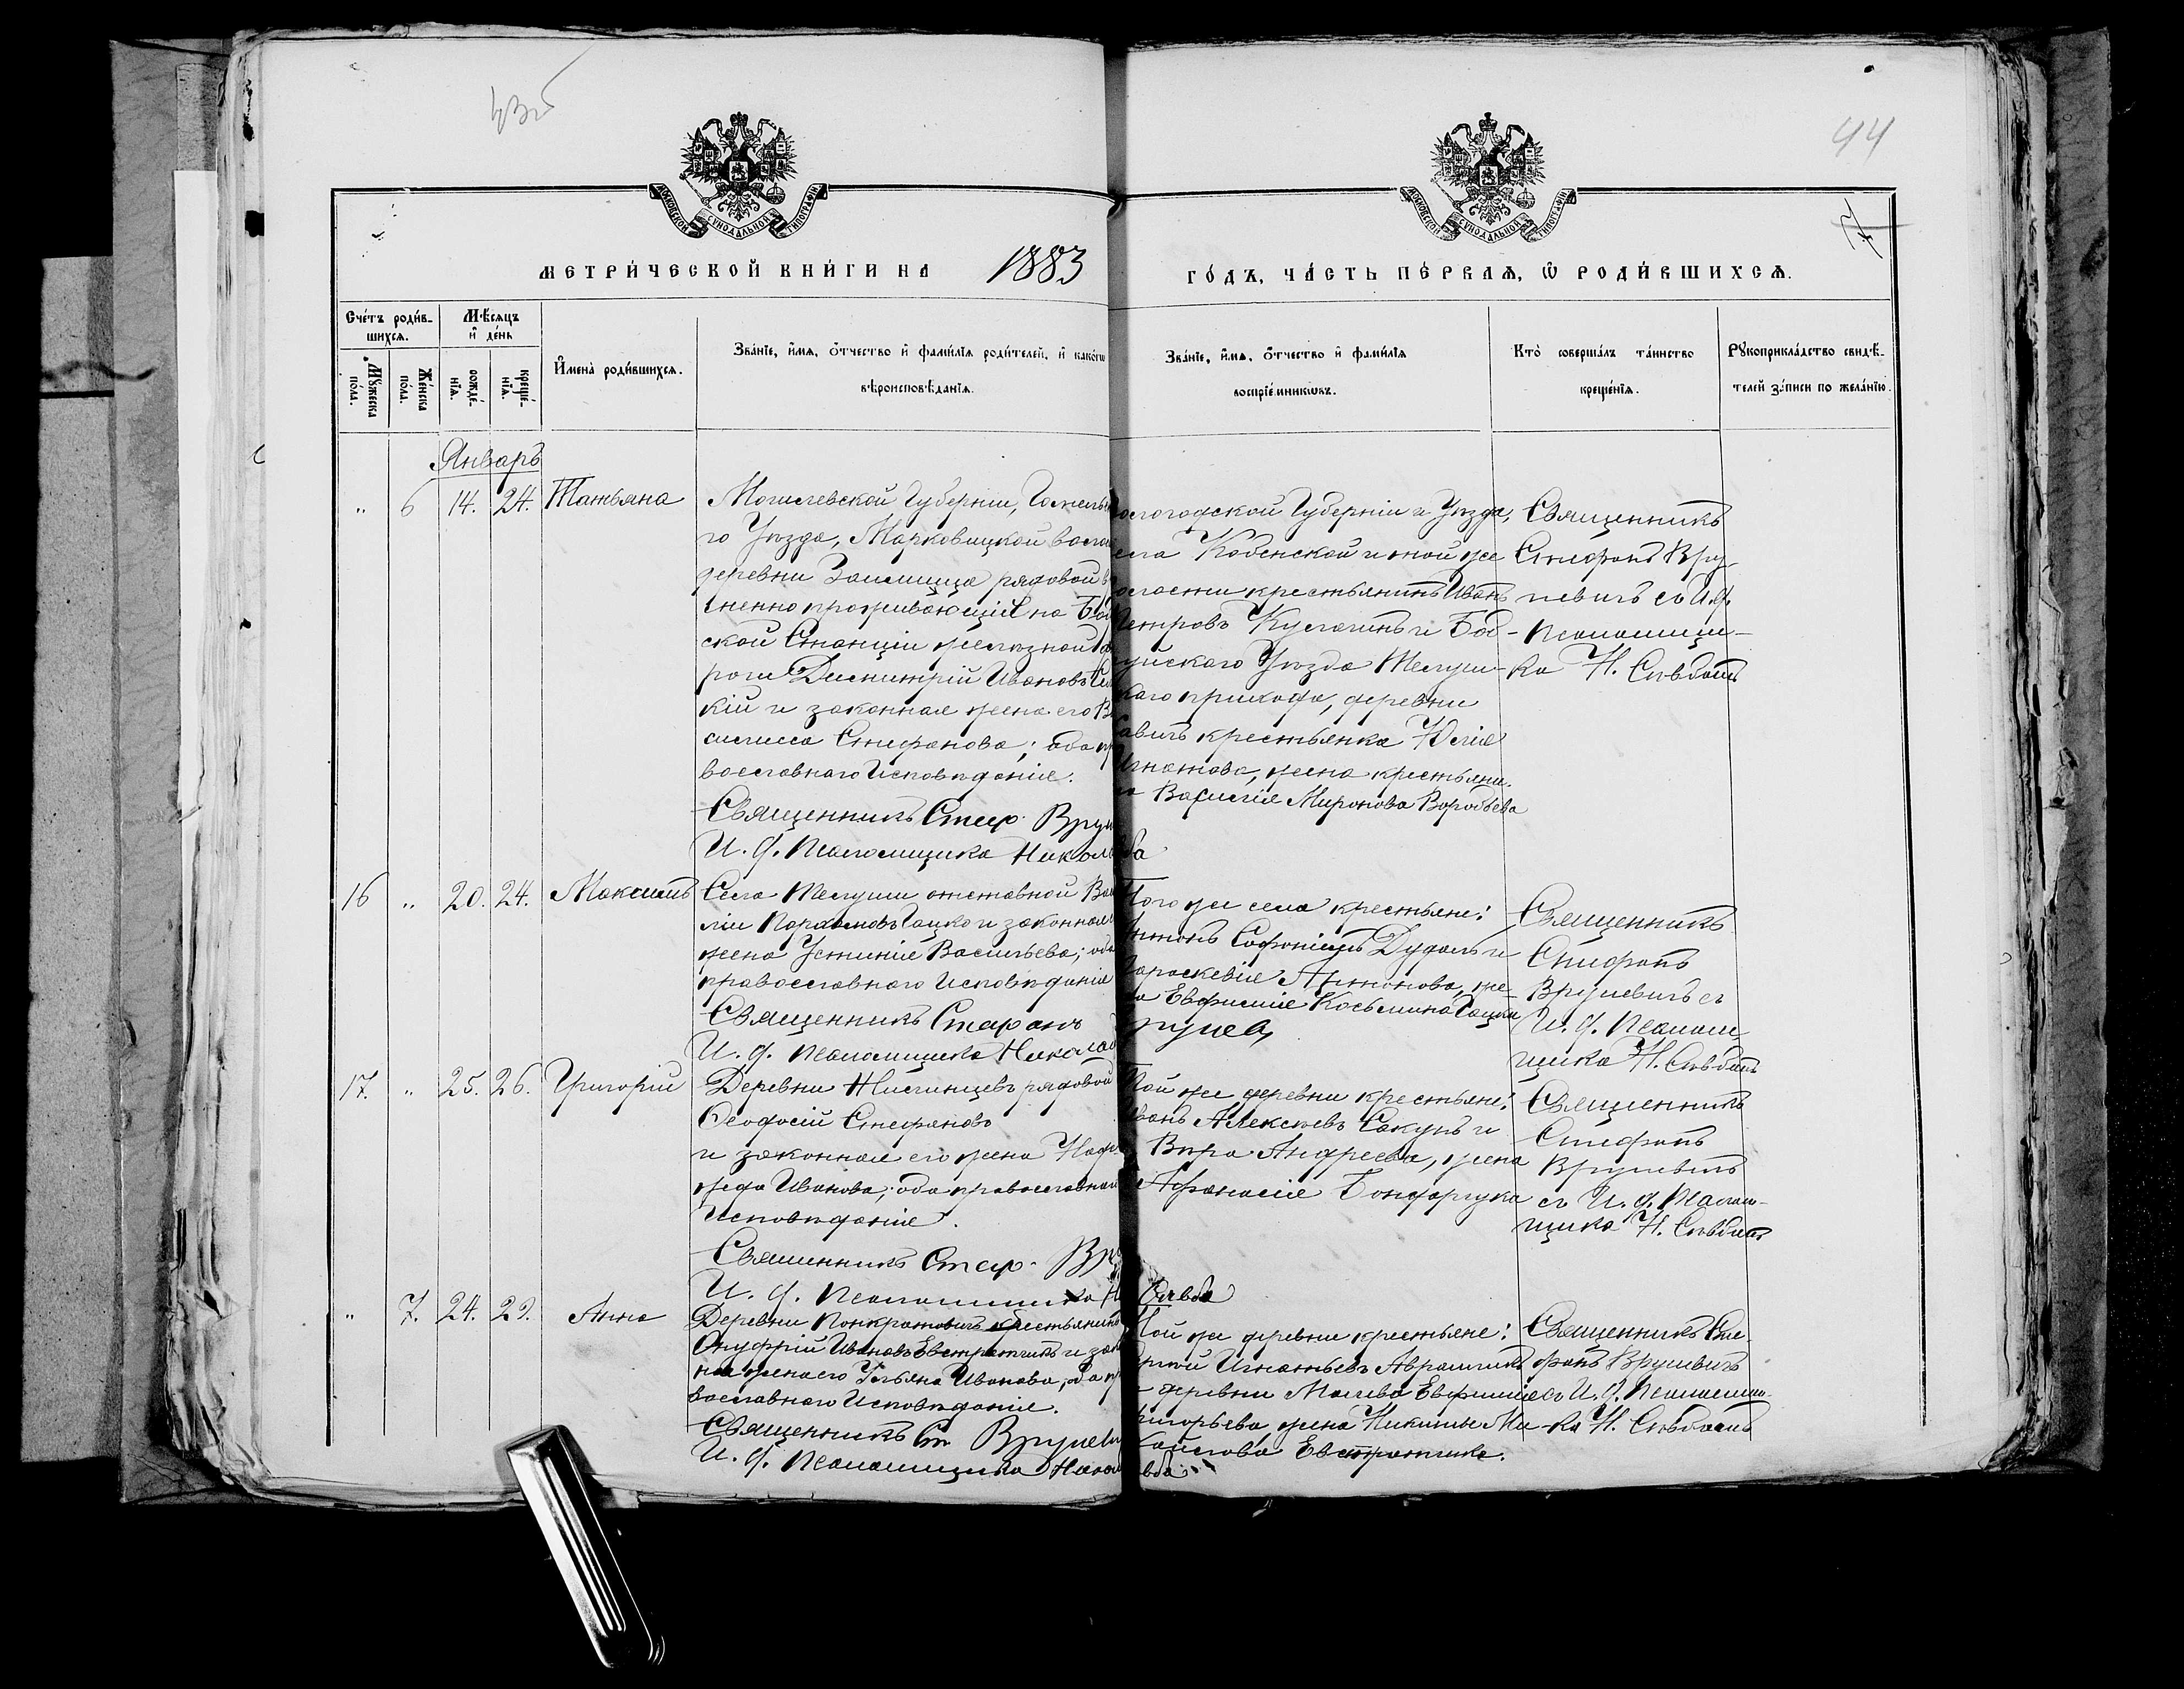 44
МОСКОВСКОЙ СУНОДАЛЬНОЙ ТИПОГРАФІИ
МОСКОВСКОЙ СУНОДАЛЬНОЙ ТИПОГРАФІИ
МЕТРИ́ЧЕСКОЙ КНИ́ГИ НА 1883 ГО́ДЪ, ЧА́СТЬ ПЕ́РВАѦ, Ѿ РОДИ́ВШИХСѦ.
Сче́тъ роди́в-
шихсѧ.
Мꙋ́жеска по́ла.
Же́нска по́ла.
Мѣ́сѧцъ и҆ де́нь
рожде́-
нїѧ.
креще́-
нїѧ.
И҆мена̀ роди́вшихсѧ.
Зва́нїе, и҆́мѧ, ѻ҆́тчество и҆ фами́лїѧ роди́телей, и҆ како́гѡ
вѣроисповѣ́данїѧ.
Зва́нїе, и҆́мѧ, ѻ҆́тчество и҆ фами́лїѧ
воспрїе́мникѡвъ.
Кто̀ соверша́лъ та́инство
креще́нїѧ.
Рꙋкоприкла́дство свидѣ́-
телей за́писи по жела́нїю.
Январь
" 6 14. 24. Татьяна
Могилевской Губерніи, Гомельс
го Уѣзда, Марковицкой воло
деревни Займища рядовой в
менно проживающій на Боб
ской Станціи желѣзной до
роги Димитрій Ивановъ
кій и законная жена его Ва
силиса Стефанова; оба пр
вославнаго Исповѣданія.
Священникъ Стеф. Вруц
И. д. Псаломщика Никола
ологодской Губерніи и Уѣзда,
ела Кобенской и той же
олости крестьянинъ Иванъ
Петровъ Кулагинъ и Боб-
уйскаго Уѣзда Телуш-
каго прихода, деревни
крестьянка Юлія
Игнатова, жена крестьяни-
на Василія Миронова Воробьева
Священникъ
Стефанъ Вру-
цевичъ съ И. д.
Псаломщи-
ка Н.
16 " 20. 24. Максимъ
Села Телуши отставной Васи
лій Пархомовъ Гацко и законная
жена Устинія Васильева; оба
православнаго Исповѣданія
Священникъ Стефанъ
И. д. Псаломщика Николай
Того же села крестьяне:
Антонъ Софроніевъ Дудаль и
Параскевія Антонова, же-
на Евфимія Косьмина Гацки
Священникъ
Стефанъ
Вруцевичъ съ
И. д. Псалом-
щика Н.
17. " 25. 26. Григорій
Деревни рядовой
Ѳеодосій Стефановъ
и законная его жена Наде
жда Иванова; оба православнаго
Исповѣданія.
Священникъ Стеф. Вру
И. д. Псаломщика Н
Той же деревни крестьяне:
Иванъ Алексѣевъ Сакунъ и
Вѣра Андреева, жена
Афанасія Бондарчука
Священникъ
Стефанъ
Вруцевичъ
съ И. д. Псалом-
щика Н.
" 7. 24. 29. Анна
Деревни Понкратовичъ крестьянинъ
Онуфрій Ивановъ Евстратчикъ и зако
ная жена его Ульяна Иванова; оба пр
вославнаго Исповѣданія.
Священникъ Ст. Вруцеви
И. д. Псаломщика Никола
Той же деревни крестьяне:
Игнатьевъ Аврамчикъ
и деревни Мачево Евфимія
Григорьева, жена Никиты Ми-
хайлова Евстратчика.
Священникъ Сте-
фанъ Вруцевичъ
съ И. д. Псаломщи-
ка Н.